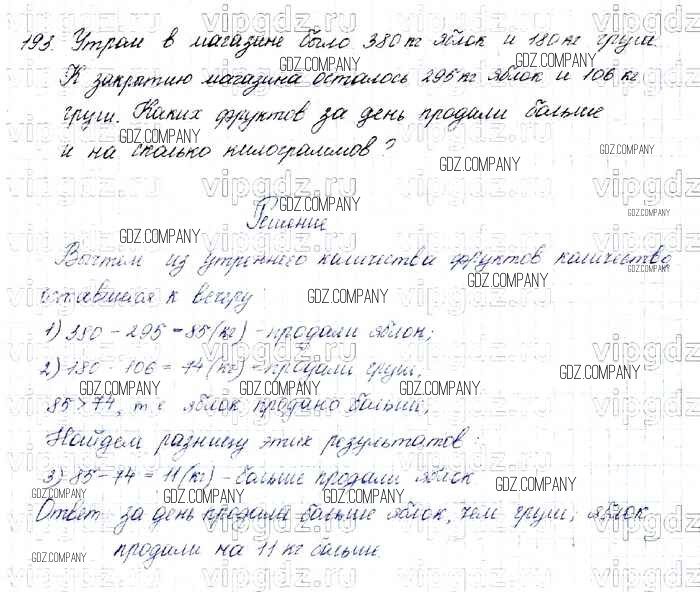 193. Утром в магазине было 380 кг яблок и 180 кг груш.
К закрытию магазина осталось 295 кг яблок и 106 кг
груш. Каких фруктов за день продали больше
и на сколько килограммов?
Решение
Вычтем из утреннего количества фруктов количество
оставшееся к вечеру:
1) 380 - 295 = 85 (кг) - продали яблок;
2) 180 - 106 = 74 (кг) - продали груш;
85 > 74, т.е яблок продано больше;
Найдем разницу этих результатов:
3) 85 - 74 = 11 (кг) - больше продали яблок
Ответ за день продали больше яблок, чем груш; яблок
продали на 11 кг больше.
GDZ.COMPANY
vipgdz.ru